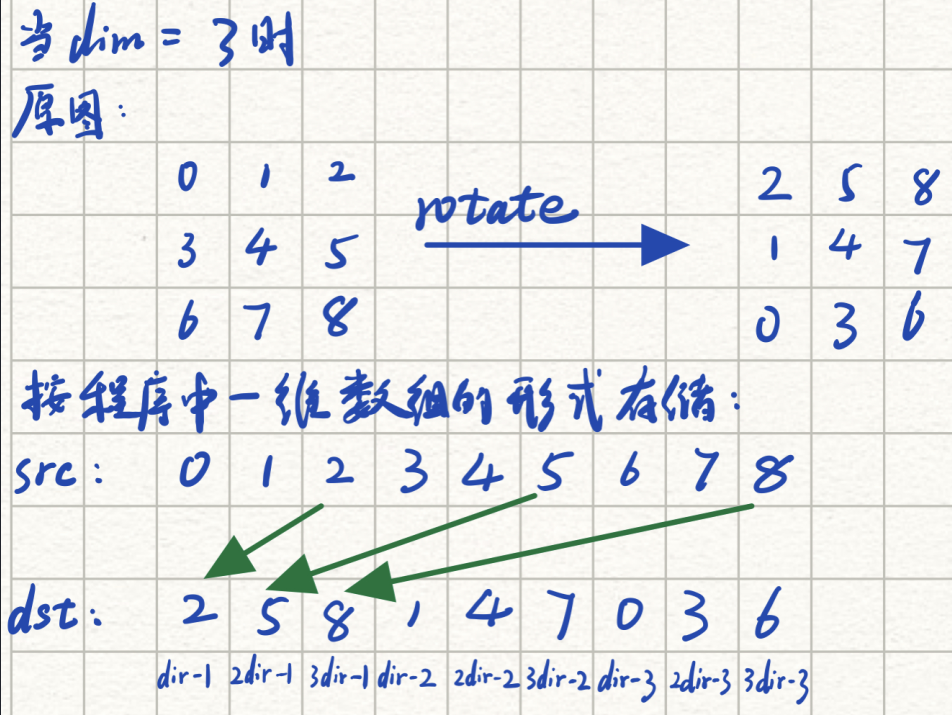 当dim = 3时
原图:
0 1 2 rotate 2 5 8
3 4 5 1 4 7
6 7 8 0 3 6
按程序中一维数组的形式存储:
src: 0 1 2 3 4 5 6 7 8
dst: 2 5 8 1 4 7 0 3 6
dir-1 2dir-1 3dir-1 dir-2 2dir-2 3dir-2 dir-3 2dir-3 3dir-3